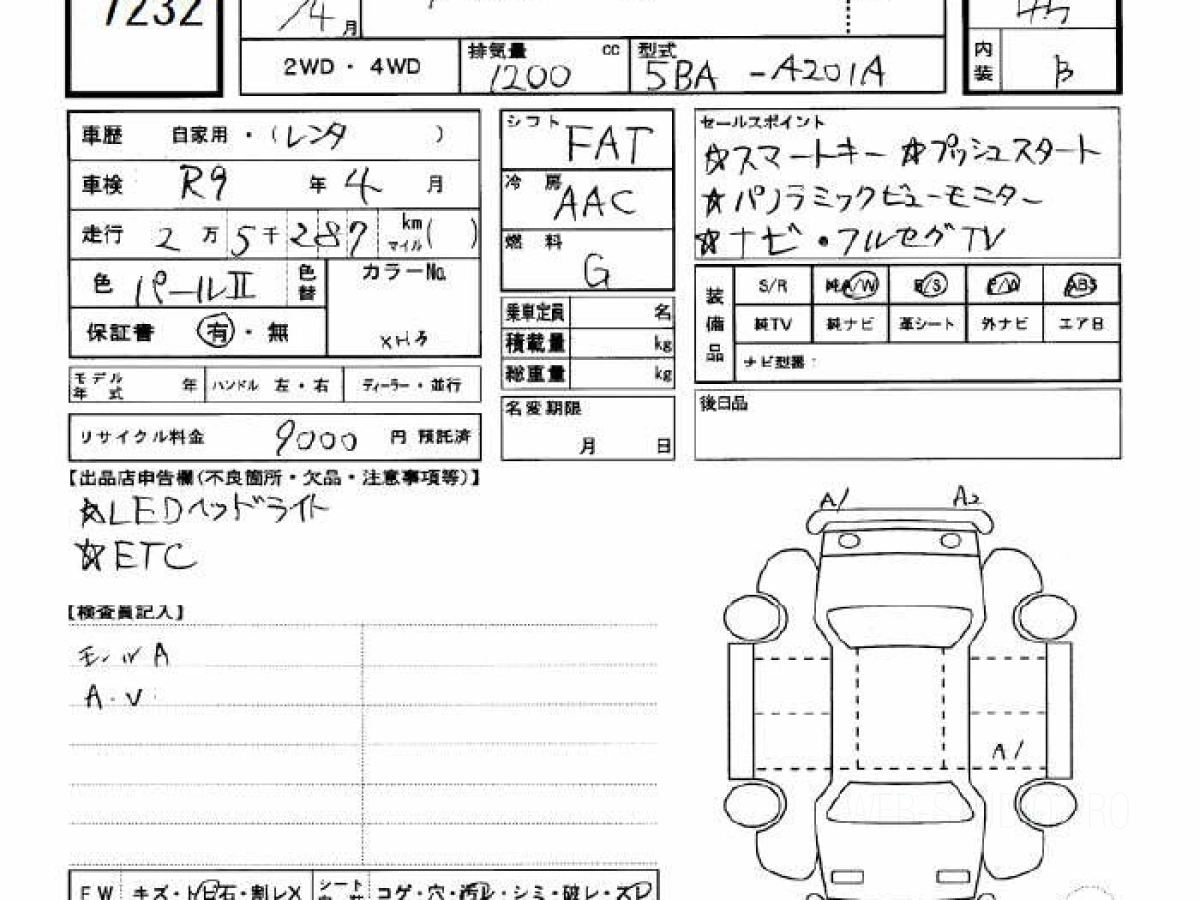 7232
/4月
2WD・4WD 排気量 1200 cc 型式 5BA -A201A
内装 B
車歴 自家用・(レンタ )
車検 R9 年 4 月
走行 2万5千287 km マイル( )
色 パールⅡ 色替 カラーNo.
保証書 有・無
モデル年式 年 ハンドル 左・右 ディーラー・並行
リサイクル料金 9000 円 預託済
シフト FAT
冷房 AAC
燃料 G
乗車定員 名
積載量 kg
総重量 kg
名変期限
月 日
セールスポイント
☆スマートキー ☆プッシュスタート
☆パノラミックビューモニター
☆ナビ・フルセグTV
装備品 S/R 純A/W P/S P/W ABS
純TV 純ナビ 革シート 外ナビ エアB
ナビ型番:
後日品
【出品店申告欄(不良箇所・欠品・注意事項等)】
☆LEDヘッドライト
☆ETC
【検査員記入】
モールA
A・V
A1 A2
A1
FW キズ・トビ石・割レX シート コゲ・穴・汚レ・シミ・破レ・スレ